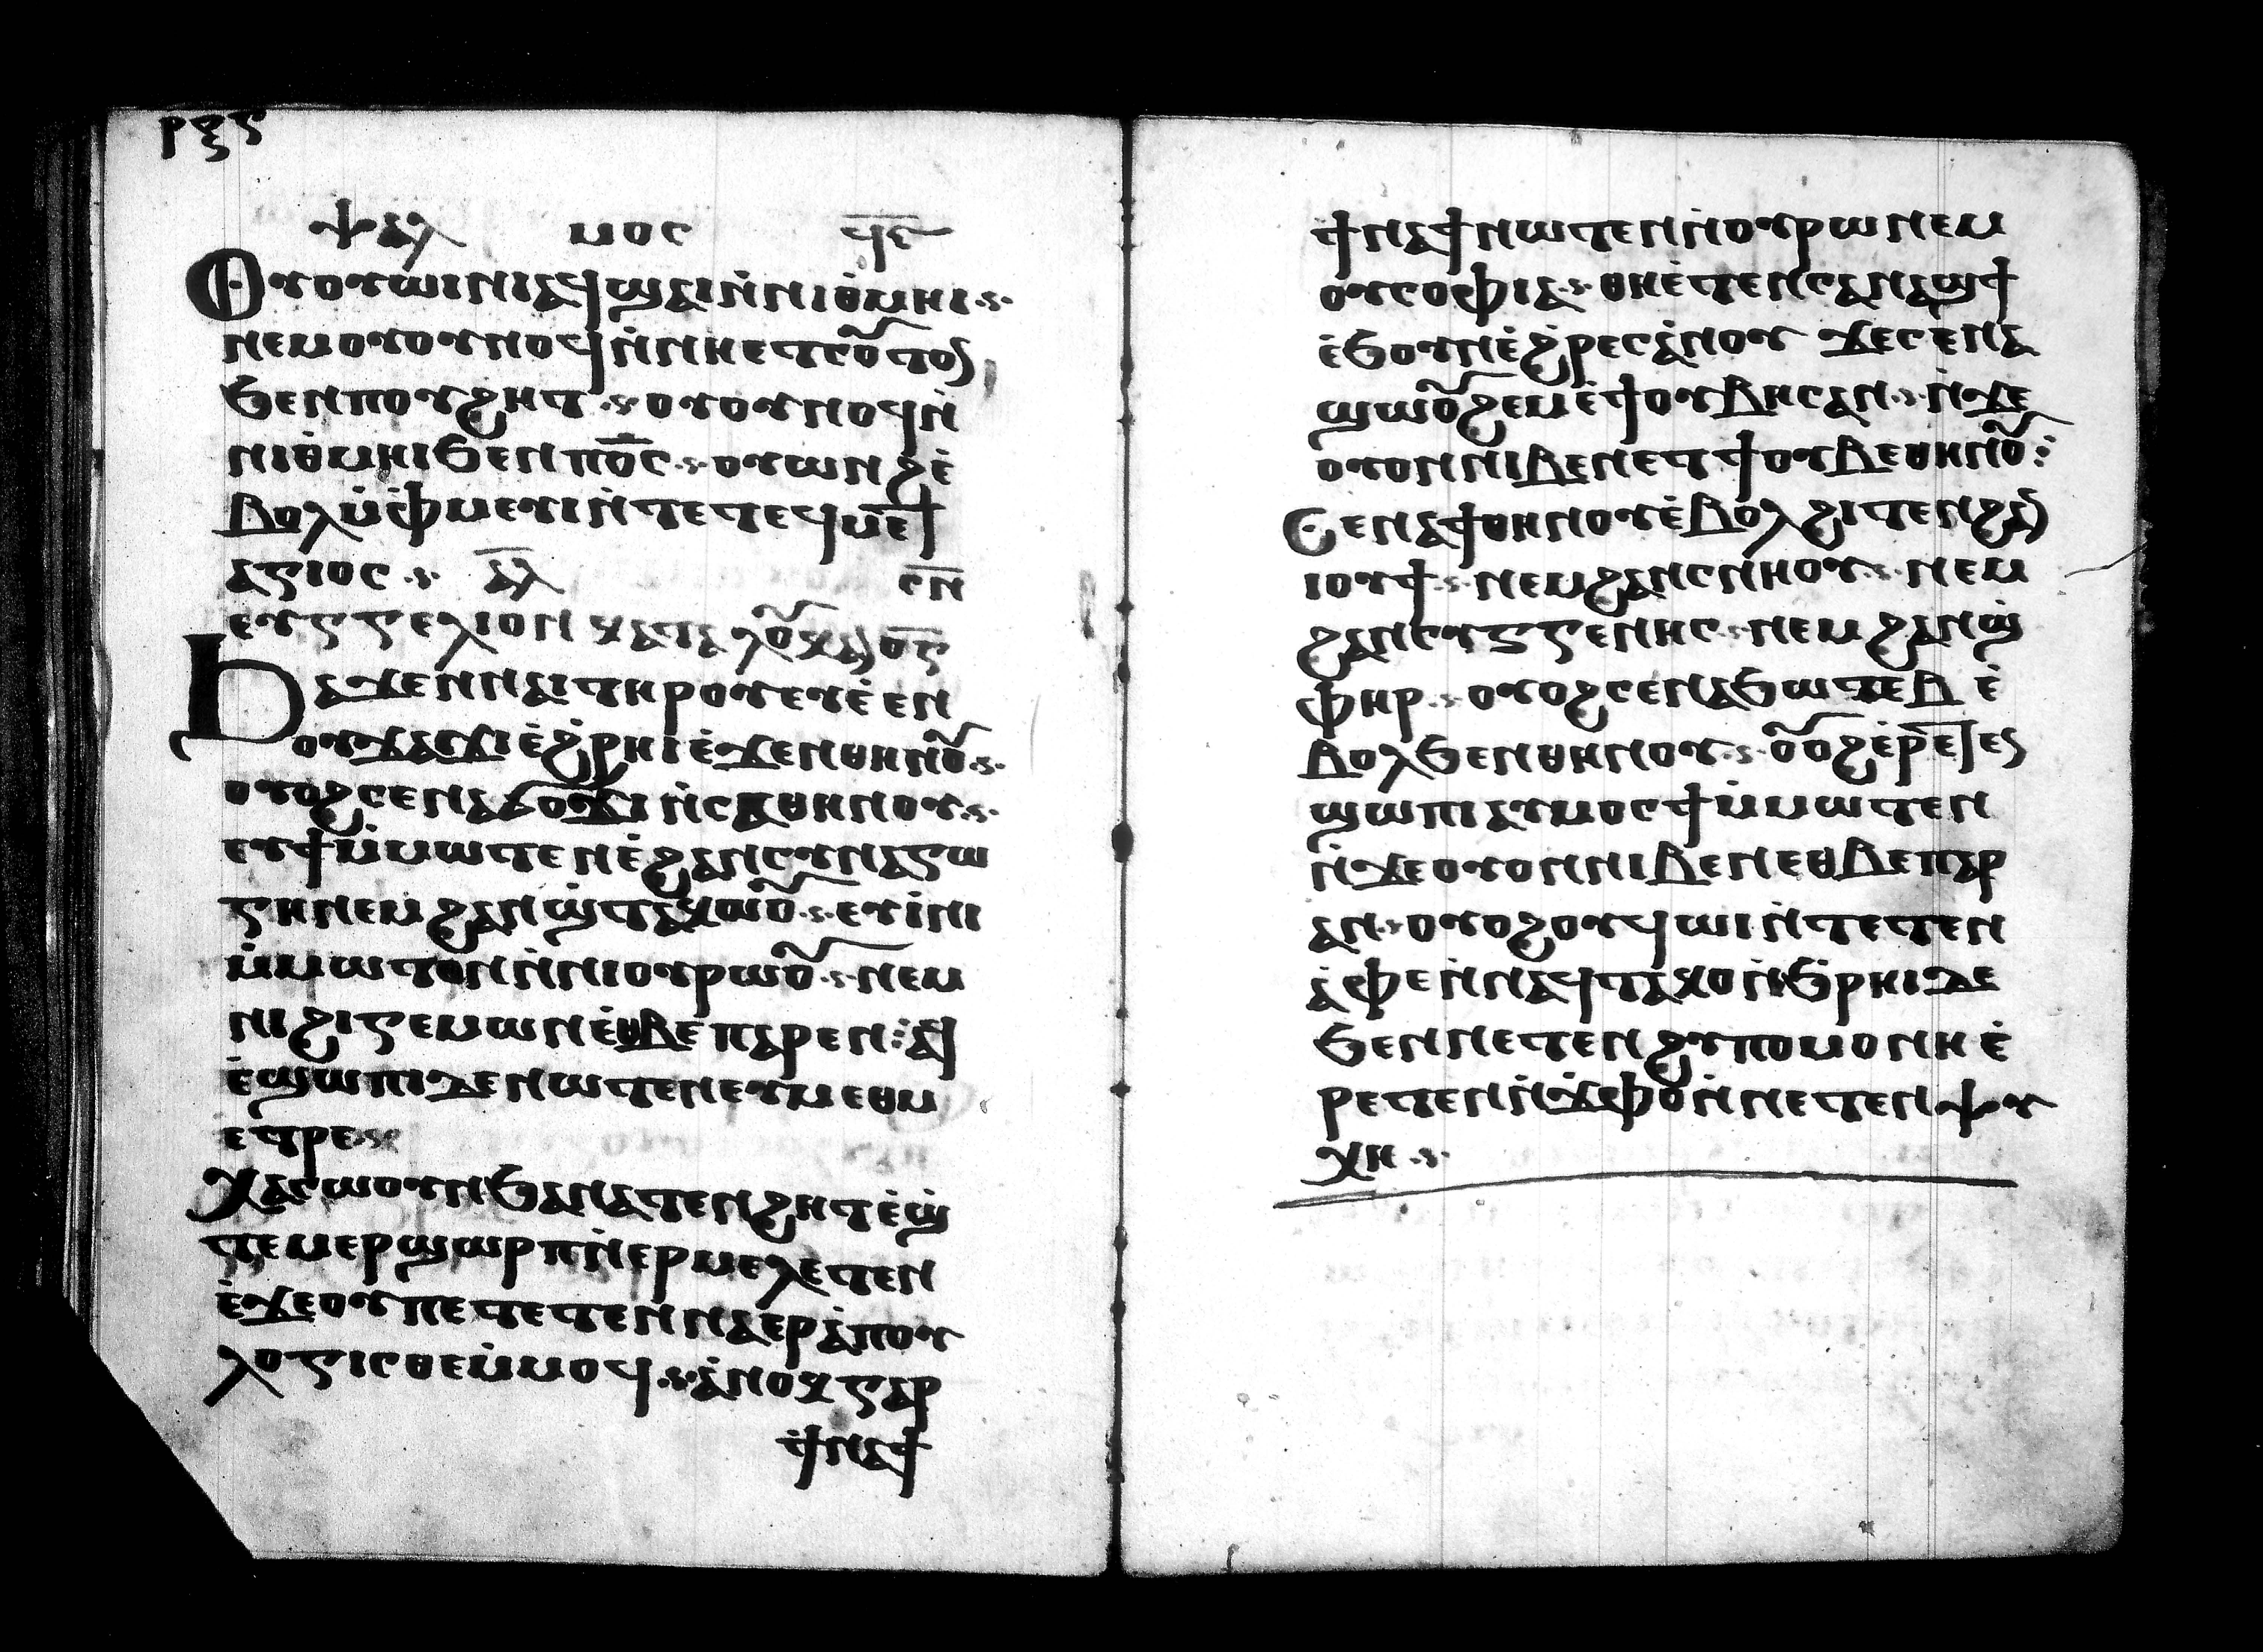 ⲣⲝⲋ
ⲯⲁⲗ ⲙⲟⲥ ϥⲋ
Ⲟⲩⲟⲩⲱⲓⲛⲓⲁϥϣⲁⲓⲛ̀ⲛⲓⲑ̀ⲙⲏⲓ
ⲛⲉⲙⲟⲩⲟⲩⲛⲟϥⲛ̀ⲛⲏⲉⲧⲥⲟ̅ⲧⲟ
ϧⲉⲛⲡⲟⲩϩⲏⲧ ⲟⲩⲟⲩⲛⲟϥⲛ̀
ⲛⲓⲑ̀ⲙⲏⲓϧⲉⲛⲡⲟ̅ⲥ ⲟⲩⲱⲛϩⲉ̀
ⲃⲟⲗⲙ̀ⲫ̀ⲙⲉⲩⲓⲛ̀ⲧⲉⲧⲉϥⲙⲉⲧ
ⲁⲅⲓⲟⲥ ⲁ̅ⲗ̅ ⲥ̅ⲛ̅
ⲉⲩⲅⲅⲉⲗⲓⲟⲛ ⲕⲁⲧⲁ ⲗⲟⲩⲕⲁⲛ ⲟ̅ⲋ̅
Ϧⲁϫⲉⲛⲛⲁⲓⲧⲏⲣⲟⲩⲉⲩⲉ̀ⲉⲛ
ⲟⲩϫⲁϫⲓⲉ̀ϩ̀ⲣⲏⲓⲉ̀ϫⲉⲛⲑⲏⲛⲟ̅
ⲟⲩⲟϩⲥⲉⲛⲁϭⲟϫⲓⲛ̀ⲥⲁⲑⲏⲛⲟⲩ
ⲉⲩϯⲙ̀ⲙⲱⲧⲉⲛⲉ̀ϩⲁⲛⲥⲩⲛⲁⲅⲱ
ⲅⲏⲛⲉⲙϩⲁⲛϣ̀ⲧⲁⲕⲱⲟ̅ ⲉⲩⲓ̀ⲛⲓ
ⲙ̀ⲙⲱⲧⲉⲛⲛ̀ⲛⲓⲟⲩⲣⲱⲟ̅ ⲛⲉⲙ
ⲛⲓϩⲓⲅⲉⲙⲱⲛⲉ̀ⲑⲃⲉⲡⲁⲣⲉⲛ
ⲉ̀ϣⲱⲡⲓⲇⲉⲛⲱⲧⲉⲛⲉⲩⲙⲉⲑⲙ
ⲉⲧⲣⲉ
Ⲭⲁⲥⲱⲟⲩⲛϧⲁⲛⲁⲧⲉⲛϩⲏⲧⲉ̀ϣ̀
ⲧⲉⲙⲉⲣϣⲱⲣⲡⲛ̀ⲉⲣⲙⲉⲗⲉⲧⲉⲛ
ⲉ̀ϫⲉⲟⲩⲡⲉⲧⲉⲧⲉⲛⲛⲁⲉⲣⲁ̀ⲡⲟⲩ
ⲗⲟⲅⲓⲥⲑⲉⲙ̀ⲙⲟϥ ⲁ̀ⲛⲟⲕⲅⲁⲣ
ϯⲛⲁϯ
ϯⲛⲁϯⲛⲱⲧⲉⲛⲛ̀ⲟⲩⲣⲱⲛⲉⲙ
ⲟⲩⲥⲟⲫⲓⲁ ⲑⲏⲉ̀ⲧⲉⲛⲥⲁⲛⲁϣϯ
ⲉ̀ϧⲟⲩⲛⲉ̀ϩ̀ⲣⲉⲥⲁ̀ⲛⲟⲩ ϫⲉⲥⲉⲛⲁ
ϣⲱⲟ̅ϩⲉⲙⲉ̀ϯⲟⲩⲃⲏⲥⲁⲛ ⲛ̀ϫⲉ
ⲟⲩⲟⲛⲛⲓⲃⲉⲛⲉⲧϯⲟⲩⲃⲉⲑⲏⲛⲟ̅
Ⲥⲉⲛⲁϯⲑⲏⲛⲟⲩⲉ̀ⲃⲟⲗϩⲓⲧⲉⲛϩⲁⲛ
ⲓⲟⲩϯ ⲛⲉⲙϩⲁⲛⲥⲛⲏⲟⲩ ⲛⲉⲙ
ϩⲁⲛⲥⲩⲅⲅⲉⲛⲏⲥ ⲛⲉⲙϩⲁⲛϣ̀
ⲫⲏⲣ ⲟⲩⲟϩⲥⲉⲛⲁϧⲱⲧⲉⲃ ⲉ̀
ⲃⲟⲗϧⲉⲛⲑⲏⲛⲟⲩ ⲟ̅ⲟϩⲉⲣⲉⲧⲉ
ϣⲱⲡⲓⲁⲩⲙⲟⲥϯⲙ̀ⲙⲱⲧⲉⲛ
ⲛ̀ϫⲉⲟⲩⲟⲛⲛⲓⲃⲉⲛⲉⲑⲃⲉⲡⲁⲣ
ⲁⲛ ⲟⲩⲟϩⲟⲩϥⲱⲓⲛ̀ⲧⲉⲧⲉⲛ
ⲁ̀ⲫⲉⲛ̀ⲛⲁϥⲧⲁⲕⲟⲛ̀ϧ̀ⲣⲏⲓⲇⲉ
ϧⲉⲛⲛⲉⲧⲉⲛϩⲩⲡⲟⲙⲟⲛⲏⲉ̀
ⲣⲉⲧⲉⲛⲛ̀ϫ̀ⲫⲟⲛ̀ⲛⲉⲧⲉⲛⲯⲩ
ⲭⲏ